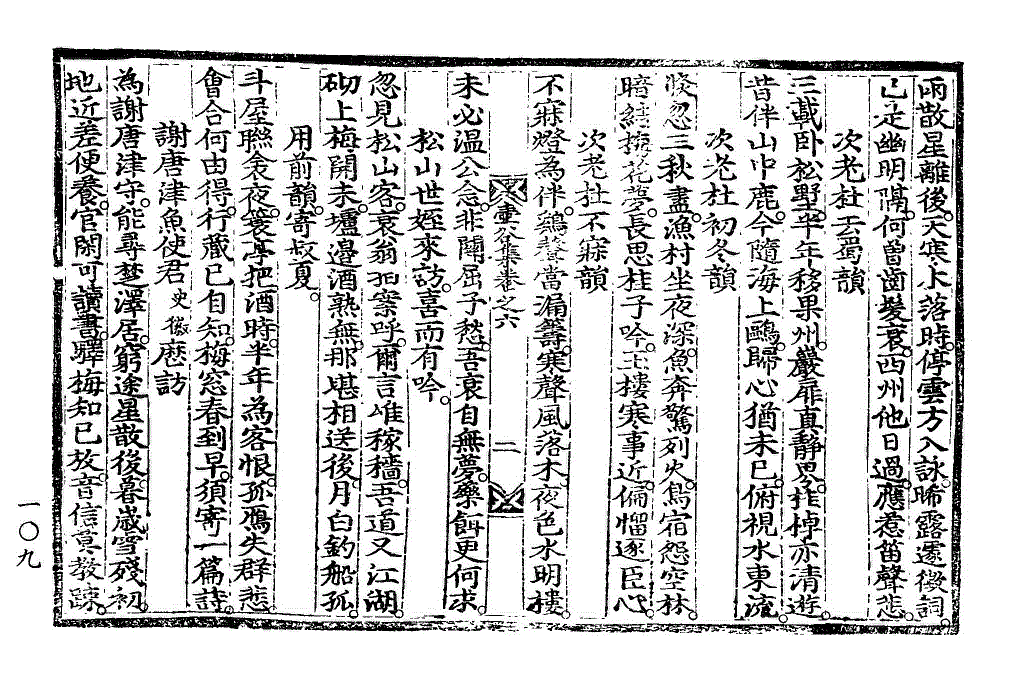 雨散星離後。天寒木落時。停雲方入詠。晞露遽徵詞。
已足幽明隔。何曾齒髮衰。西州他日過。應惹笛聲悲。
次老杜去蜀韻
三載卧松墅。半年移果州。巖扉真靜界。柞棹亦清遊。
昔伴山中鹿。今隨海上鷗。歸心猶未已。俯視水東流。
次老杜初冬韻
倏忽三秋盡。漁村坐夜深。魚奔驚列火。鳥宿怨空林。
暗結梅花夢。長思桂子吟。玉樓寒事近。偏惱逐臣心。
次老杜不寐韻
不寐燈為伴。鷄聲當漏籌。寒聲風落木。夜色水明樓。
壺谷集卷之六
二
未必溫公念。非關屈子愁。吾衰自無夢。藥餌更何求。
松山世姪來訪。喜而有吟。
忽見松山客。衰翁拍案呼。爾言唯稼穡。吾道又江湖。
砌上梅開未。壚邊酒熟無。那堪相送後。月白釣船孤。
用前韻。寄叔夏。
斗屋聯衾夜。蓑亭把酒時。半年為客恨。孤鴈失群悲。
會合何由得。行藏已自知。梅窓春到早。須寄一篇詩。
謝唐津魚使君史徵歷訪
為謝唐津守。能尋楚澤居。窮途星散後。暮歲雪殘初。
地近差便養。官閑可讀書。驛梅知已放。音信莫教踈。
一〇九